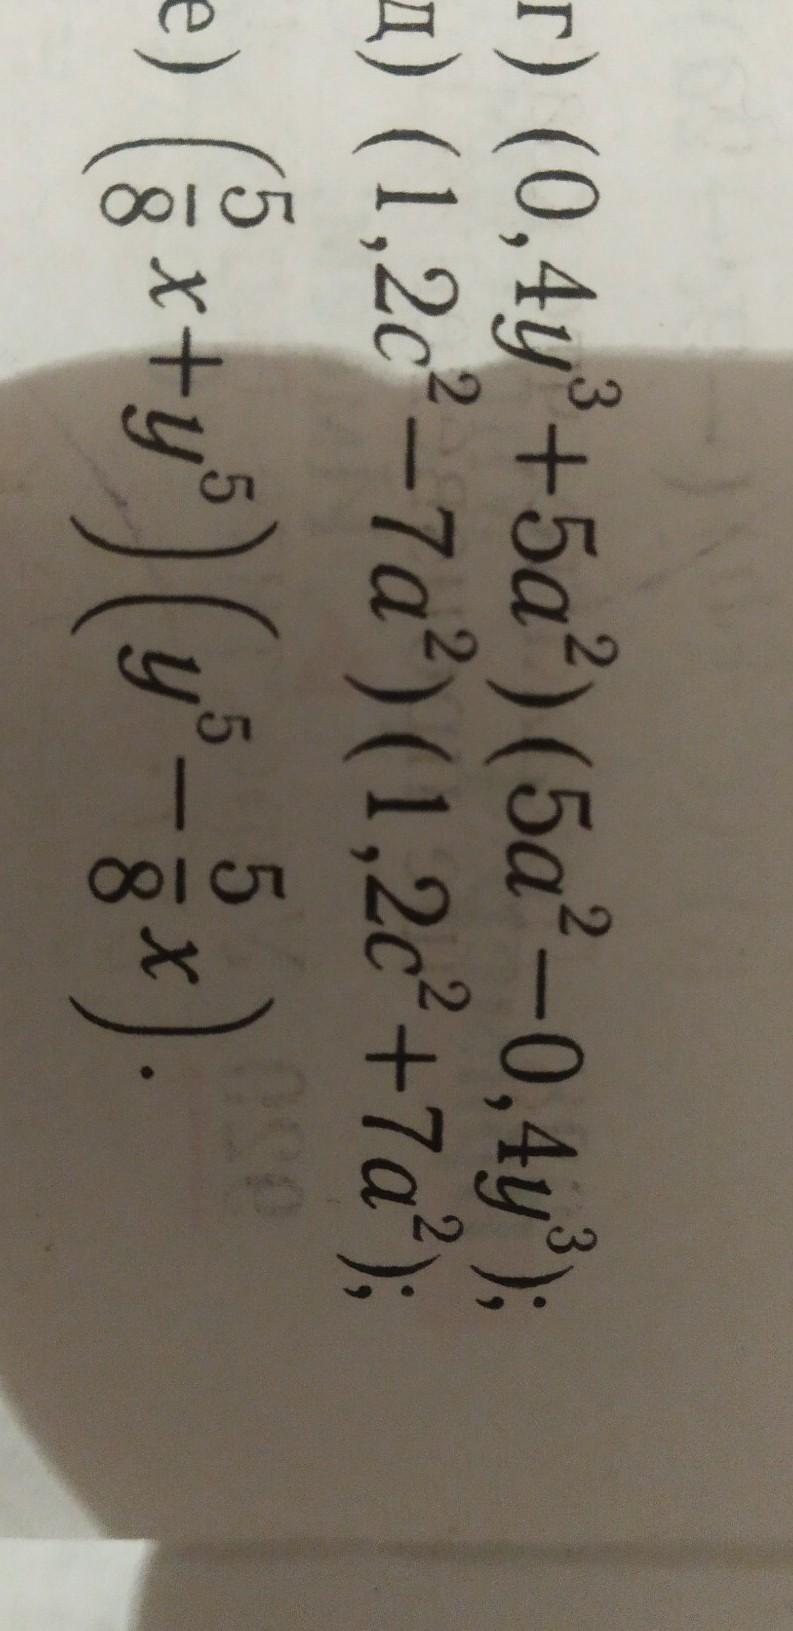 г) (0,4y³+5a²)(5a²−0,4y³);
д) (1,2c²−7a²)(1,2c²+7a²);
е) (5/8 x+y⁵)(y⁵−5/8 x).